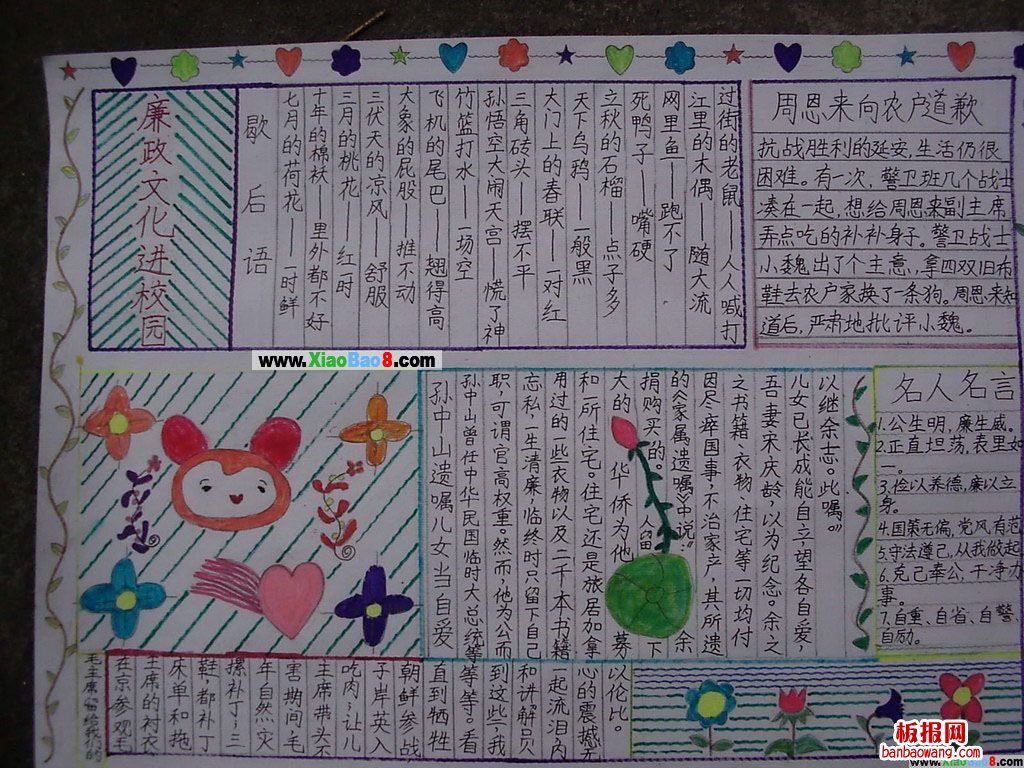 廉政文化进校园
歇后语
七月的荷花——一时鲜
十年的棉袄——里外都不好
三月的桃花——红一时
三伏天的凉风——舒服
大象的屁股——推不动
飞机的尾巴——翘得高
竹篮打水——一场空
孙悟空大闹天宫——慌了神
三角砖头——摆不平
大门上的春联——一对红
天下乌鸦——一般黑
立秋的石榴——点子多
死鸭子——嘴硬
网里鱼——跑不了
江里的木偶——随大流
过街的老鼠——人人喊打
周恩来向农户道歉
抗战胜利的延安,生活仍很
困难。有一次,警卫班几个战士
凑在一起,想给周恩来副主席
弄点吃的补补身子。警卫战士
小魏出了个主意,拿四双旧布
鞋去农户家换了一条狗。周恩来知
道后,严肃地批评小魏。
www.XiaoBao8.com
孙中山遗嘱儿女当自爱
孙中山曾任中华民国临时大总统等
职,可谓官高权重。然而,他为公而
忘私,一生清廉,临终时只留下自己
用过的一些衣物以及二千本书籍
和一所住宅。住宅还是旅居加拿
大的华侨为他募
捐购买的。人留下
的《家属遗嘱》中说:“余
因尽瘁国事,不治家产,其所遗
之书籍、衣物、住宅等一切均付
吾妻宋庆龄,以为纪念。余之
儿女已长成,能自立,望各自爱,
以继余志。此嘱。》
名人名言
1.公生明,廉生威。
2.正直坦荡,表里如
一。
3.俭以养德,廉以立
身。
4.国策无偏,党风有范
5.守法遵己,从我做起
6.克己奉公,干净办
事。
7.自重、自省、自警、
自励。
毛主席留给我们的
在京参观毛
主席的衬衣
床单和拖
鞋,都补丁
摞补丁,三
年自然灾
害期间,毛
主席带头不
吃肉,让儿
子岸英入
朝鲜参战
直到牺牲
等等。看
到这些,我
和讲解员
一起流泪,内
心的震撼无
以伦比。
板报网
banbaowang.com
www.XiaoBao8.com